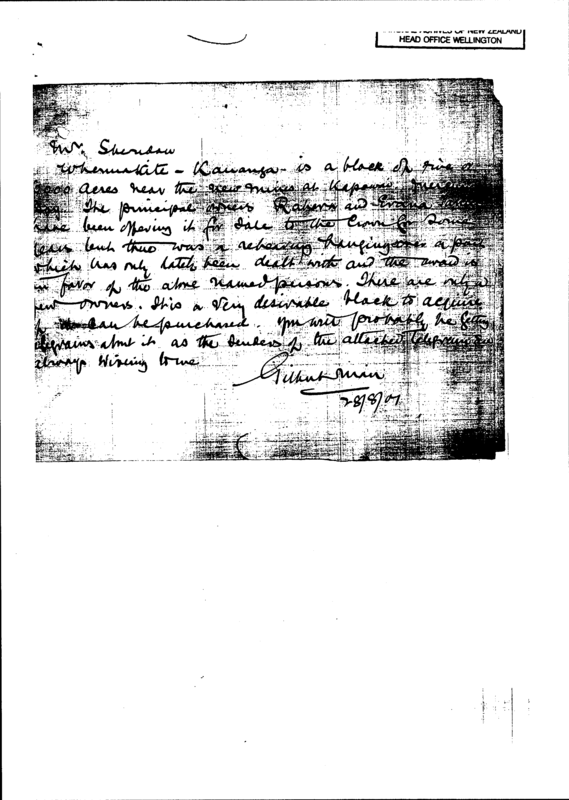 NATIONAL ARCHIVES OF NEW ZEALAND
HEAD OFFICE WELLINGTON
Mr. Sheridan
Whenuakite - Kauanga - is a block of five or
acres near the new mines at Kapowai Mercury
Bay. The principal owners and
have been offering it for sale to the Crown for some
years but there was a rehearing hanging over a part
which has only lately been dealt with and the award is
in favor of the above named persons. There are only a
few owners. It is a very desirable block to acquire
if can be purchased. You will probably be getting
telegrams about it as the senders of the attached telegram are
always wiring to me
Gilbert Mair
28/8/01